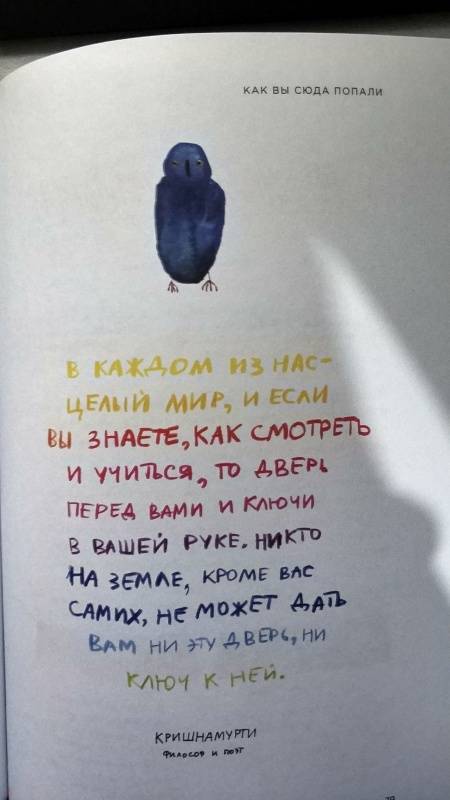 КАК ВЫ СЮДА ПОПАЛИ
В КАЖДОМ ИЗ НАС-
ЦЕЛЫЙ МИР, И ЕСЛИ
ВЫ ЗНАЕТЕ, КАК СМОТРЕТЬ
И УЧИТЬСЯ, ТО ДВЕРЬ
ПЕРЕД ВАМИ И КЛЮЧИ
В ВАШЕЙ РУКЕ. НИКТО
НА ЗЕМЛЕ, КРОМЕ ВАС
САМИХ, НЕ МОЖЕТ ДАТЬ
ВАМ НИ ЭТУ ДВЕРЬ, НИ
КЛЮЧ К НЕЙ.
КРИШНАМУРТИ
ФИЛОСОФ И ПОЭТ